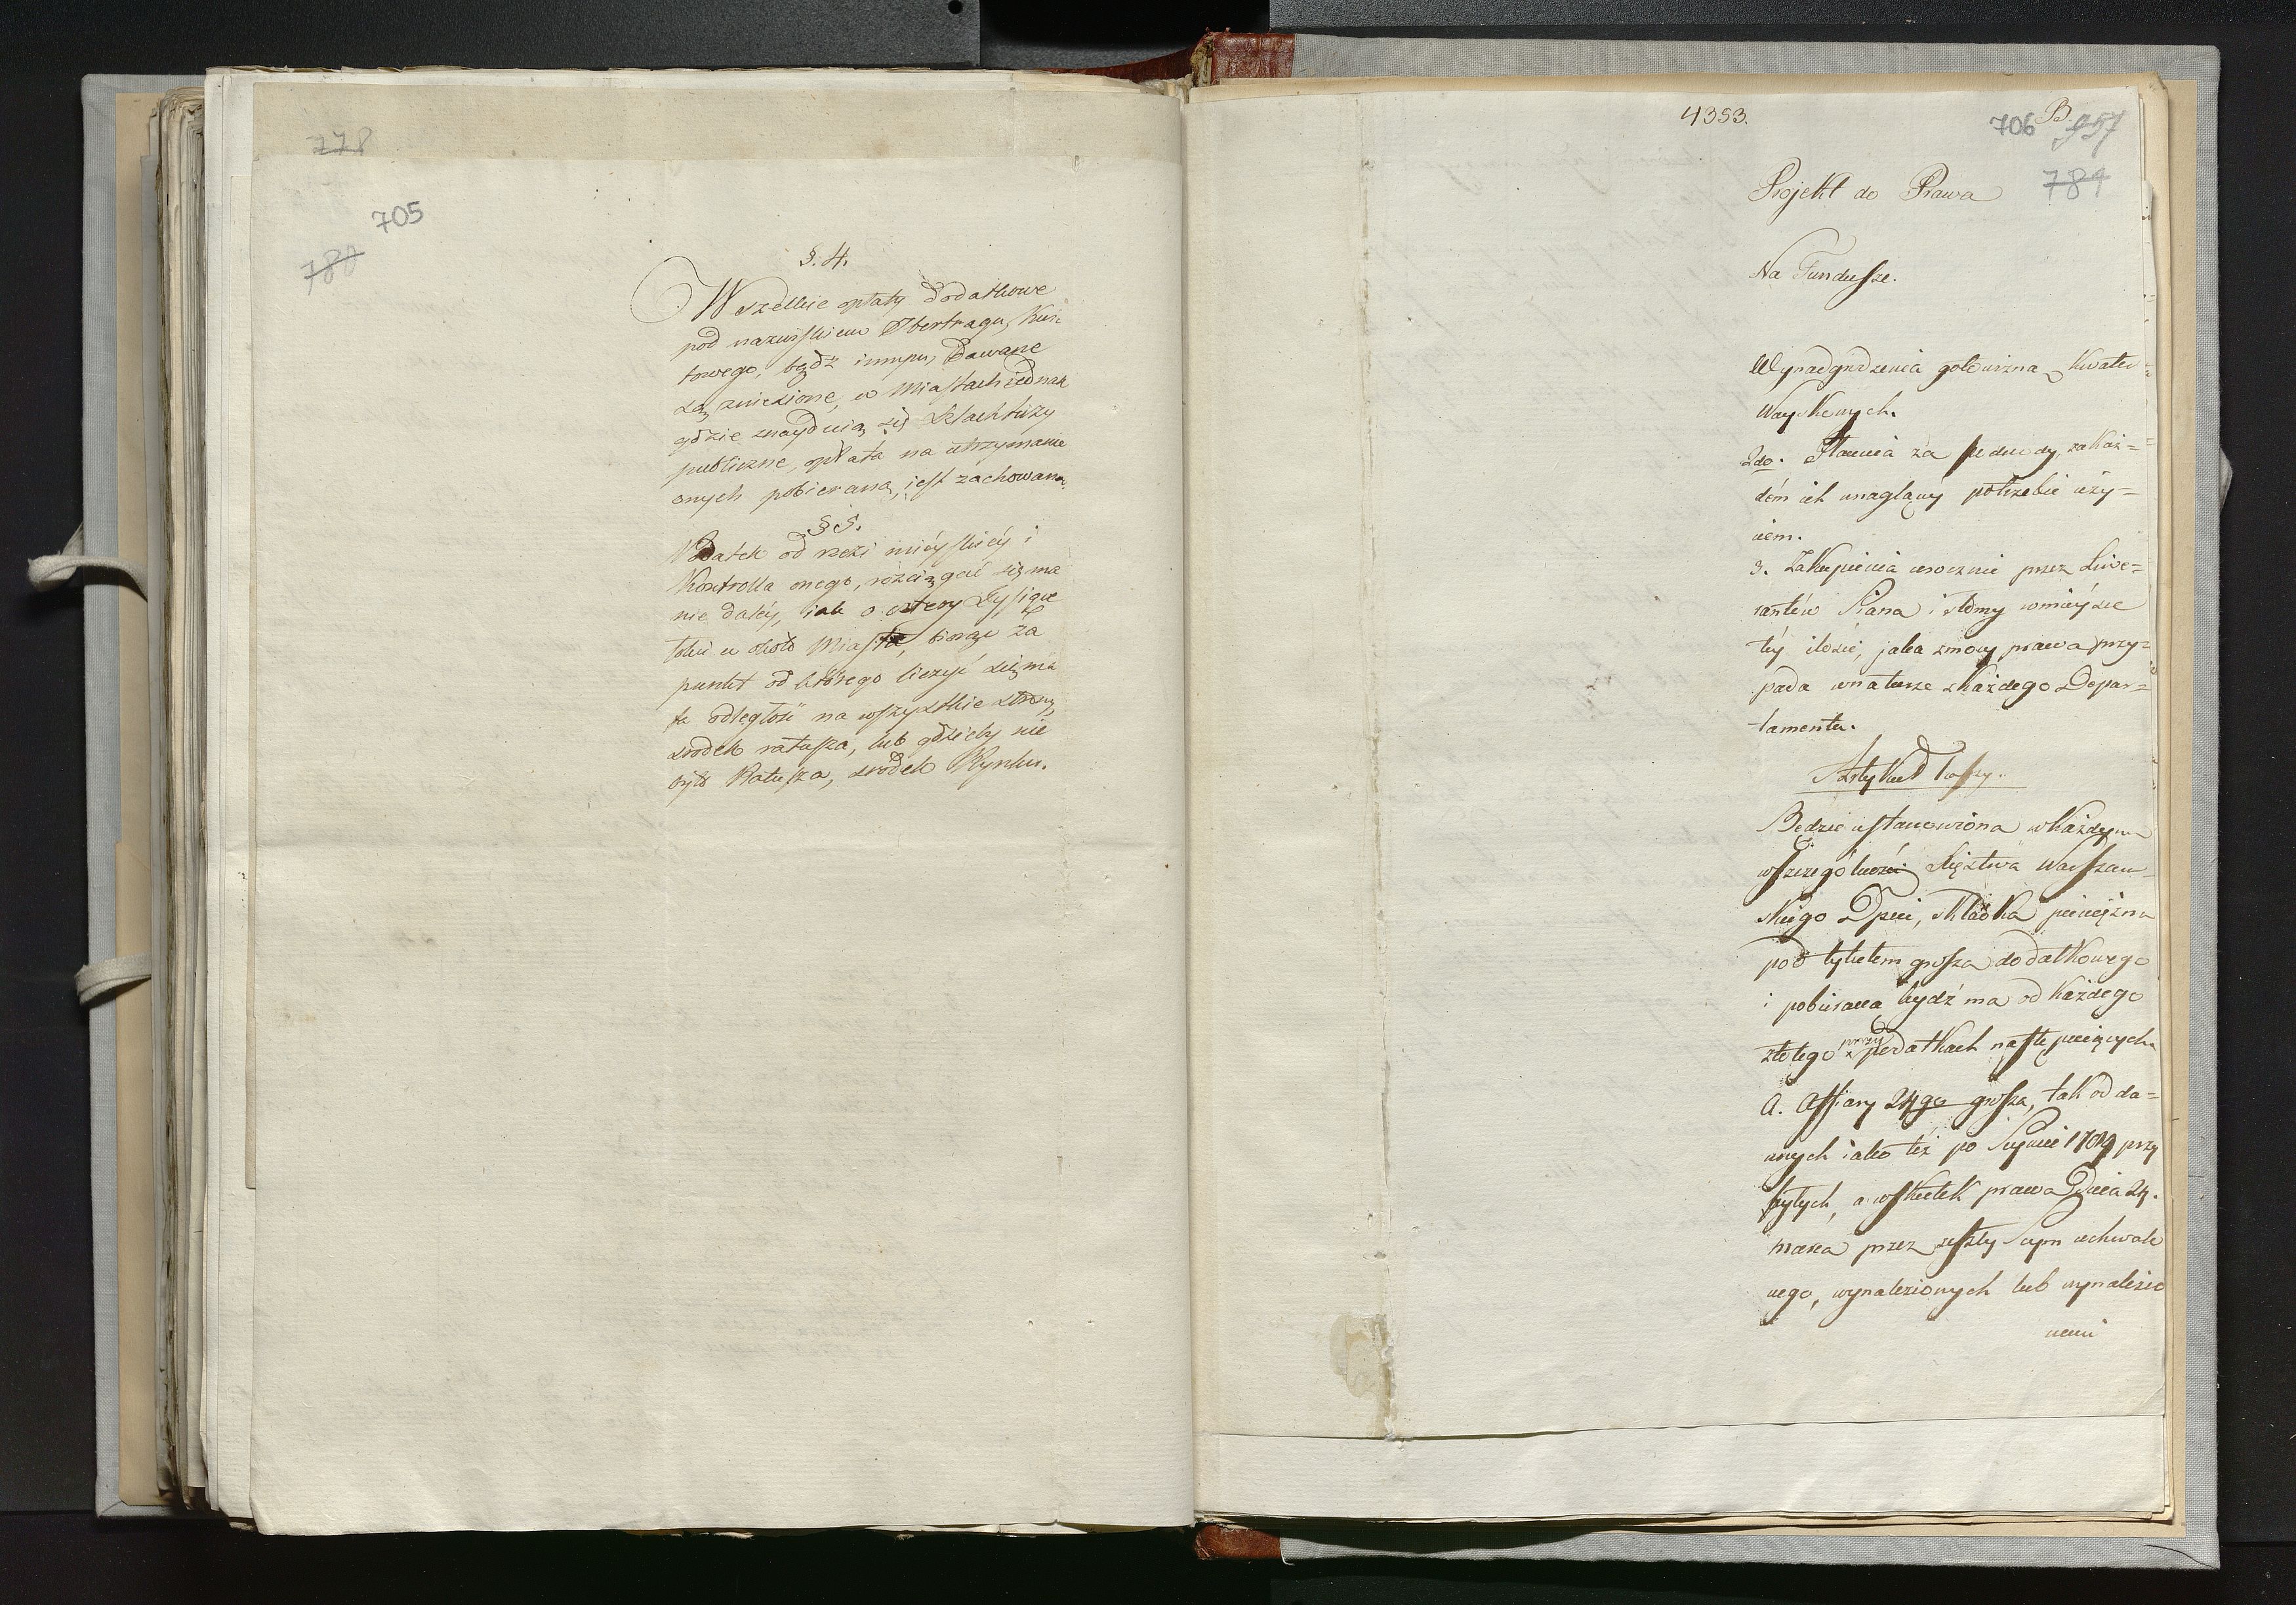 778
705
780
§. 4.
Wszelkie opłaty dodatkowe
pod nazwiskiem Ibertragu, Kwi:
towego, bądź innym, dawane
są zniesione, w Miastach jednak
gdzie znayduią się Szlachtuzy
publiczne, opłata na utrzymanie
onych pobierana, iest zachowana.
§ 5.
Podatek od rzezi mieyskiey i
Kontrolla onego, rozciągać się ma
nie daley, iak o cztery Tysiące
łokci w około Miasta, biorąc za
punkt od którego liczyć się ma
ta odległość na wszystkie strony,
srodek ratusza, lub gdzieby nie
było Ratusza, srodek Rynku.
4353.
706 B. 957
781
Projekt do Prawa
Na Fundusze.
Wynadgrodzenia gotowizną Kwater
Woyskowych.
2do. Płacenia za podwody, za każ=
dém ich w nagłéy potrzebie uży=
ciem.
3. Zakupienia corocznie przez Liwe=
rantów Siana i słomy w mieysce
téy ilości, jaka z mocy prawa przy=
pada w naturze z każdego Depar=
tamentu.
Artykuł 1szy.
Będzie ustanowiona w każdym
w szczególności Xięztwa Warszaw=
skiego Dpcie, składka pieniężna
pod tytułem grosza dodatkowego
i pobierana bydź ma od każdego
złotego przy podatkach następuiących.
A. Offiary 24go grosza, tak od da=
wnych iako też po Seymie 1789 przy
byłych, a w skutek prawa Dnia 24.
marca przez zeszły Seym uchwalo
nego, wynalezionych lub wynaleźć
nemi